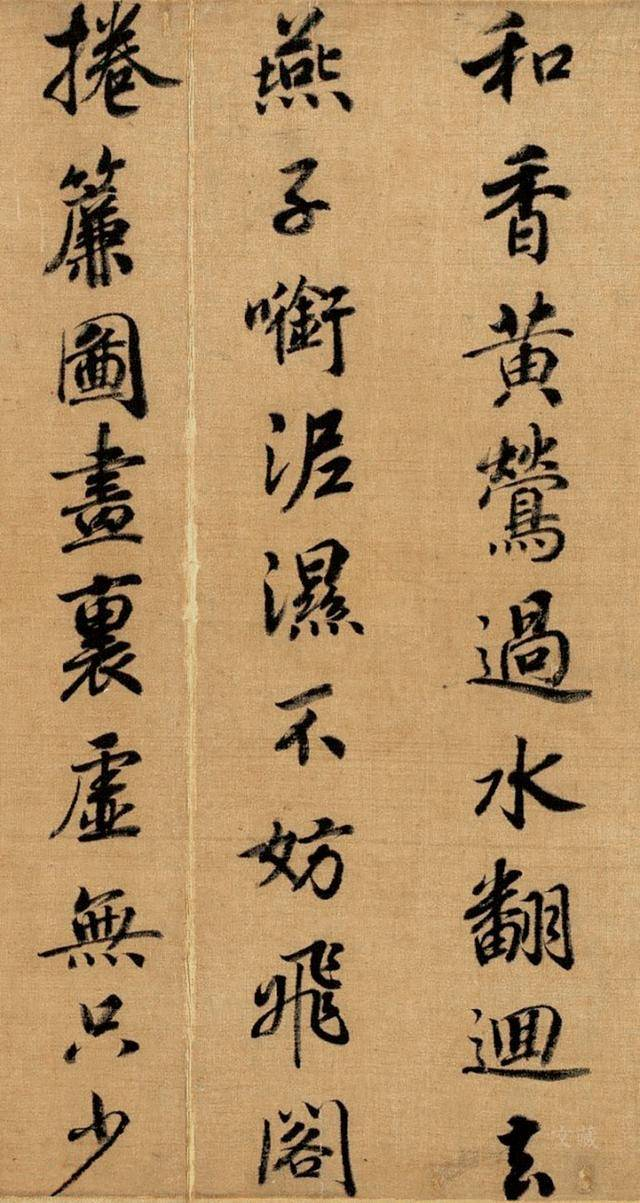 和香黄鶯過水翻迴去
燕子啣泥濕不妨飛閣
捲簾圖畫裏虛無只少
文藏